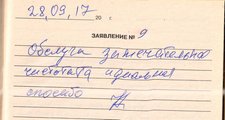 28,09,17
20 г.
ЗАЯВЛЕНИЕ № 9
Обслуга замечательная
чистота идеальная
спасибо